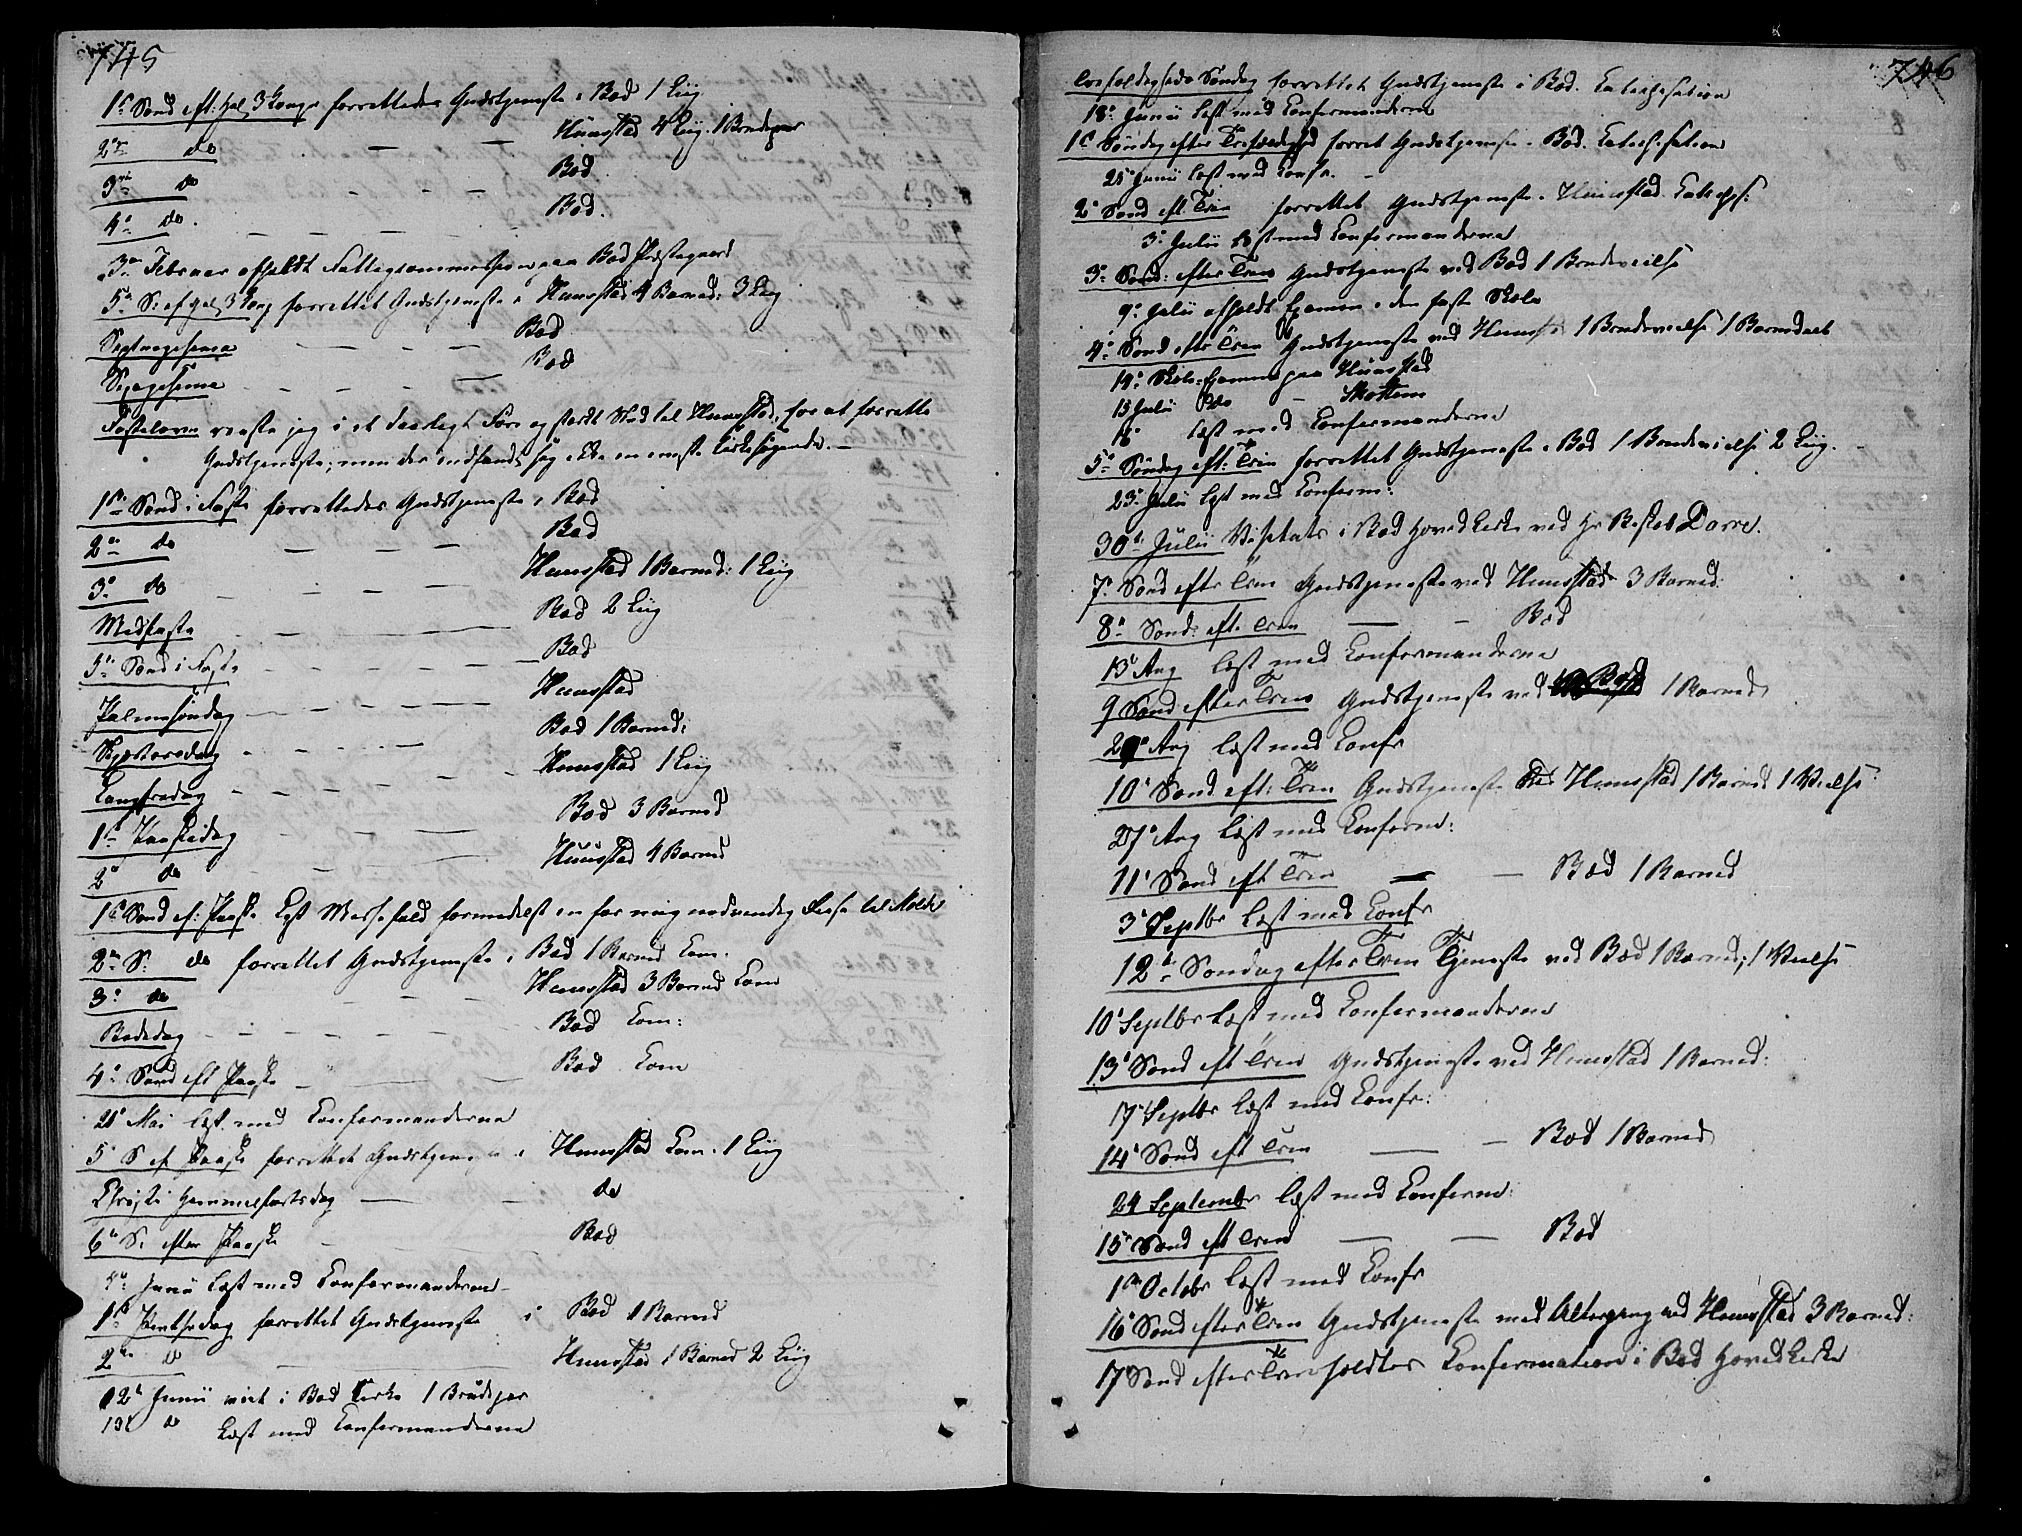 745
1ste Sønd. eft. Hel. 3 Konger forrettedes Gudstjeneste i Bod 1 Liig
2den do — — — Huustad 4 Liig. 1 Brudepar
3die do — — — Bod.
4de do. — — — Bod.
3die Februar afholdt Fattigcommission paa Bod Præstegaard
5te S. ef. Hel. 3 Kong forrettet Gudstjeneste i Huustad 4 Barned: 3 Liig
Septuagesima — — — Bod
Sexagesima — — — Bod
Fastelavn reiste jeg i et daarligt Føre og stærkt Vind til Huustad, for at forrette
Gudstjeneste; men der indfandt sig ikke en eneste Kirkesøgende. —
1ste Sønd. i Faste forrettedes Gudstjeneste i Bod
2den do — — — Bod
3die do — — — Huustad 1 Barned: 1 Liig
Midfaste — — — Bod 2 Liig
5te Sønd i Faste — — — Bod
Palmesøndag — — — Huustad
Skjærtorsdag — — — Bod 1 Barned:
Langfredag — — — Huustad 1 Liig
1ste Paaskedag — — — Bod 3 Barned
2den do — — — Huustad 4 Barned
1ste Sønd ef: Paaske lyst Messefald formedelst en for mig nødvendig Reise til Molde
2den S: do forrettet Gudstjeneste i Bod 1 Barned Com.
3die do — — — Huustad 3 Barned Com
Bededag — — — Bod Com:
4de Sønd eft Paaske — — — Bod Com
21de Mai læst med Confirmanderne
5te S ef Paaske forrettet Gudstjeneste i Huustad Com. 1 Liig
Christi Himmelfartsdag — — do
6te S. efter Paaske — Bod
5te Junii læst med Confirmanderne
1ste Pintsedag forrettet Gudstjeneste i Bod 1 Barned
2den do — — Huustad 1 Barned 2 Liig
12te Junii viet i Bod Kirke 1 Brudepar
13de do Læst med Confirmanderne
746
Trefoldigheds Søndag forrettet Gudstjeneste i Bod. Catechisation
18de Junii læst med Confirmanderne
1ste Søndag efter Trefoldighed forret Gudstjeneste i Bod. Catechisation
25de Junii læst med Confr. —
2den Sønd eft. Trin forrettet Gudstjeneste i Huustad. Catechis:
3die Julii læst med Confirmanderne
3die Sønd: efter Trin Gudstjeneste ved Bod 1 Brudevielse
9de Julii afholdt Examen i den faste Skole
4de Sønd efter Trin Gudstjeneste ved Huust 1 Brudevielse 1 Barnedaab
14de Skole-Examen paa Huustad
15 Julii do — Skottem
16 læst med Confirmanderne
5te Søndag eft: Trin forrettet Gudstjeneste i Bod 1 Brudevielse 2 Liig. —
23de Julii læst med Confirm:
30te Julii Visitats i Bod Hovedkirke ved Hr Biskob Darre.
7de Sønd efter Trin Gudstjeneste ved Huustad 3 Barned:
8de Sønd. eft. Trin — — Bod
13de Aug læst med Confirmanderne
9 Sønd efter Trin Gudstjeneste ved Bod 1 Barned
20de Aug læst med Confr
10de Sønd. eft: Trin Gudstjeneste ved Huustad 1 Barned 1 Vielse
27de Aug læst med Confirm:
11te Sønd eft Trin — — Bod 1 Barned
3die Septbr læst med Confr
12te Søndag efter Trin Tjeneste ved Bod 1 Barned; 1 Vielse
10de Septbr læst med Confirmanderne
13de Sønd eft Trin Gudstjeneste ved Huustad 1 Barned:
17de Septbr læst med Confr:
14de Sønd eft Trin — — Bod 1 Barned
24 Septembr læst med Confirm:
15de Sønd eft Trin — — Bod
1ste Octobr læst med Confr
16de Sønd efter Trin Gudstjeneste med Altergang ved Huustad 3 Barned:
17de Sønd efter Trin holdtes Confirmation i Bod Hovedkirke